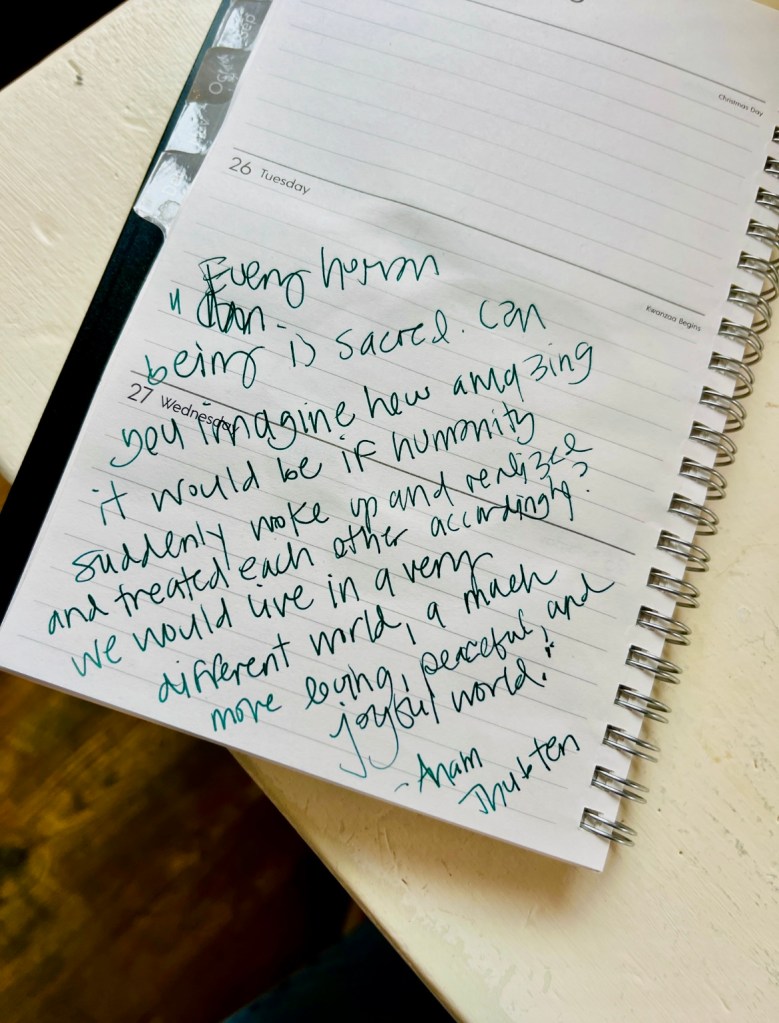 Christmas Day
26 Tuesday
Every human
"
being is sacred. Can
Kwanzaa Begins
27 Wednesday
you imagine how amazing
it would be if humanity
suddenly woke up and realized
and treated each other accordingly?
we would live in a very
different world, a much
more loving, peaceful, and
joyful world."
- Anam
Thubten